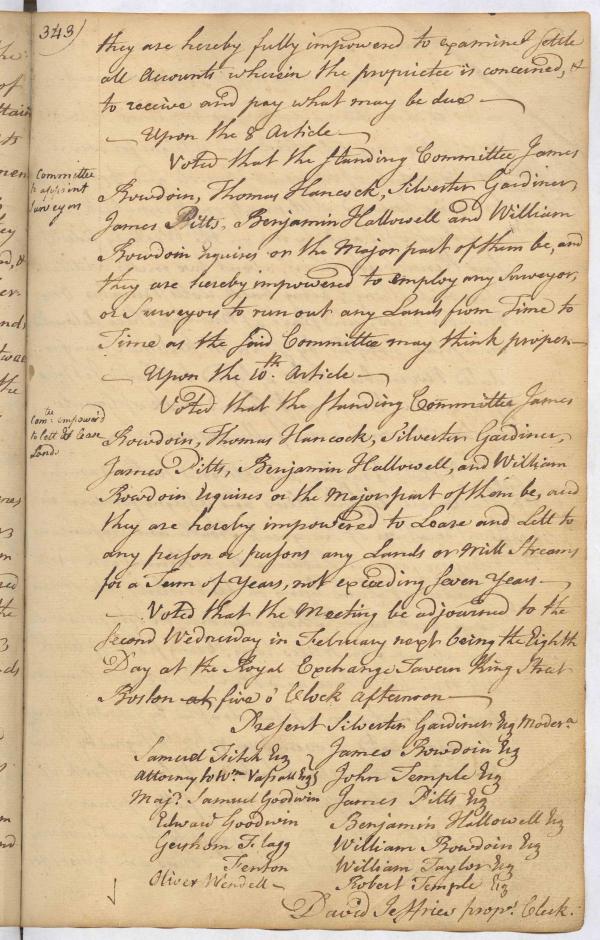 343)
they are hereby fully impowered to examine & settle
all Accounts wherein the propriete is concerned, &
to receive and pay what may be due —
— Upon the 8 Article —
Voted that the Standing Committee James
Committee
to appoint
Surveyors
Bowdoin, Thomas Hancock, Silvester Gardiner,
James Pitts, Benjamin Hallowell and William
Bowdoin Esquires or the Major part of them be, and
they are hereby impowered to employ any Surveyor,
or Surveyors to run out any Lands from Time to
Time as the said Committee may think proper —
— Upon the 10th. Article —
Voted that the Standing Committee James
Comtee: impower'd
to Lett & lease
Lands
Bowdoin, Thomas Hancock, Silvester Gardiner,
James Pitts, Benjamin Hallowell, and William
Bowdoin Esquires or the Major part of them be, and
they are hereby impowered to Lease and Lett to
any person or persons any Lands or Mill Streams
for a Term of Years, not exceeding Seven Years —
— Voted that the Meeting be adjourned to the
Second Wednesday in February next being the Eighth
Day at the Royal Exchange Tavern King Street
Boston at five o'Clock afternoon —
Present Silvester Gardiner Esq Modera
Samuel Fitch Esq } James Bowdoin Esq
Attorney to Wm Vassall Esq } John Temple Esq
Majr. Samuel Goodwin James Pitts Esq
Edward Goodwin Benjamin Hallowell Esq
Gershom Flagg William Bowdoin Esq
Fenton William Taylor Esq
Oliver Wendell — Robert Temple Esq
David Jeffries proprs. Clerk.